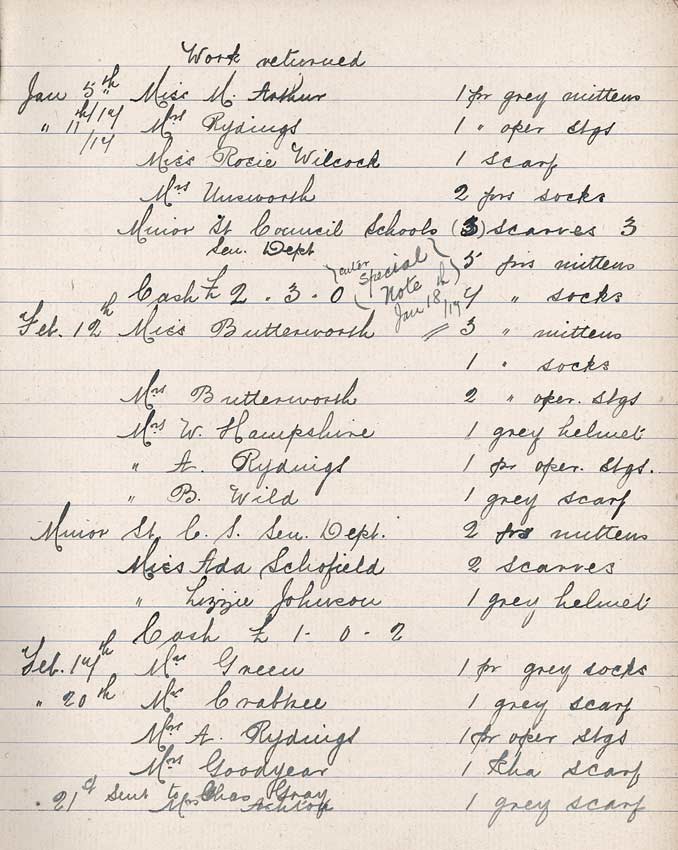 Work returned
Jan 5th Miss M. Arthur 1 pr grey mittens
" 11th/14 Mrs Rydings 1 " oper stgs
/14
Miss Rosie Wilcock 1 scarf
Mrs Unsworth 2 prs socks
Minor St Council Schools (3) scarves 3
Sen. Dept 5 prs mittens
Cash £ 2 . 3 . 0 (enter Special Note Jan 18th/19) 4 " socks
Feb. 12th Miss Butterworth 3 " mittens
1 " socks
Mrs Butterworth 2 " oper. stgs
Mrs W. Hampshire 1 grey helmet
" A. Rydings 1 pr oper. stgs.
" B. Wild 1 grey scarf
Minor St C. S. Sen. Dept. 2 prs mittens
Miss Ada Schofield 2 scarves
" Lizzie Johnson 1 grey helmet
Cash £ 1 - 0 - 2
Feb. 14th Mrs Green 1 pr grey socks
" 20th Mrs Crabtree 1 grey scarf
Mrs A. Rydings 1 pr oper stgs
Mrs Goodyear 1 Kha scarf
. 21st Sent to Chas Gray
Mrs Ashton 1 grey scarf